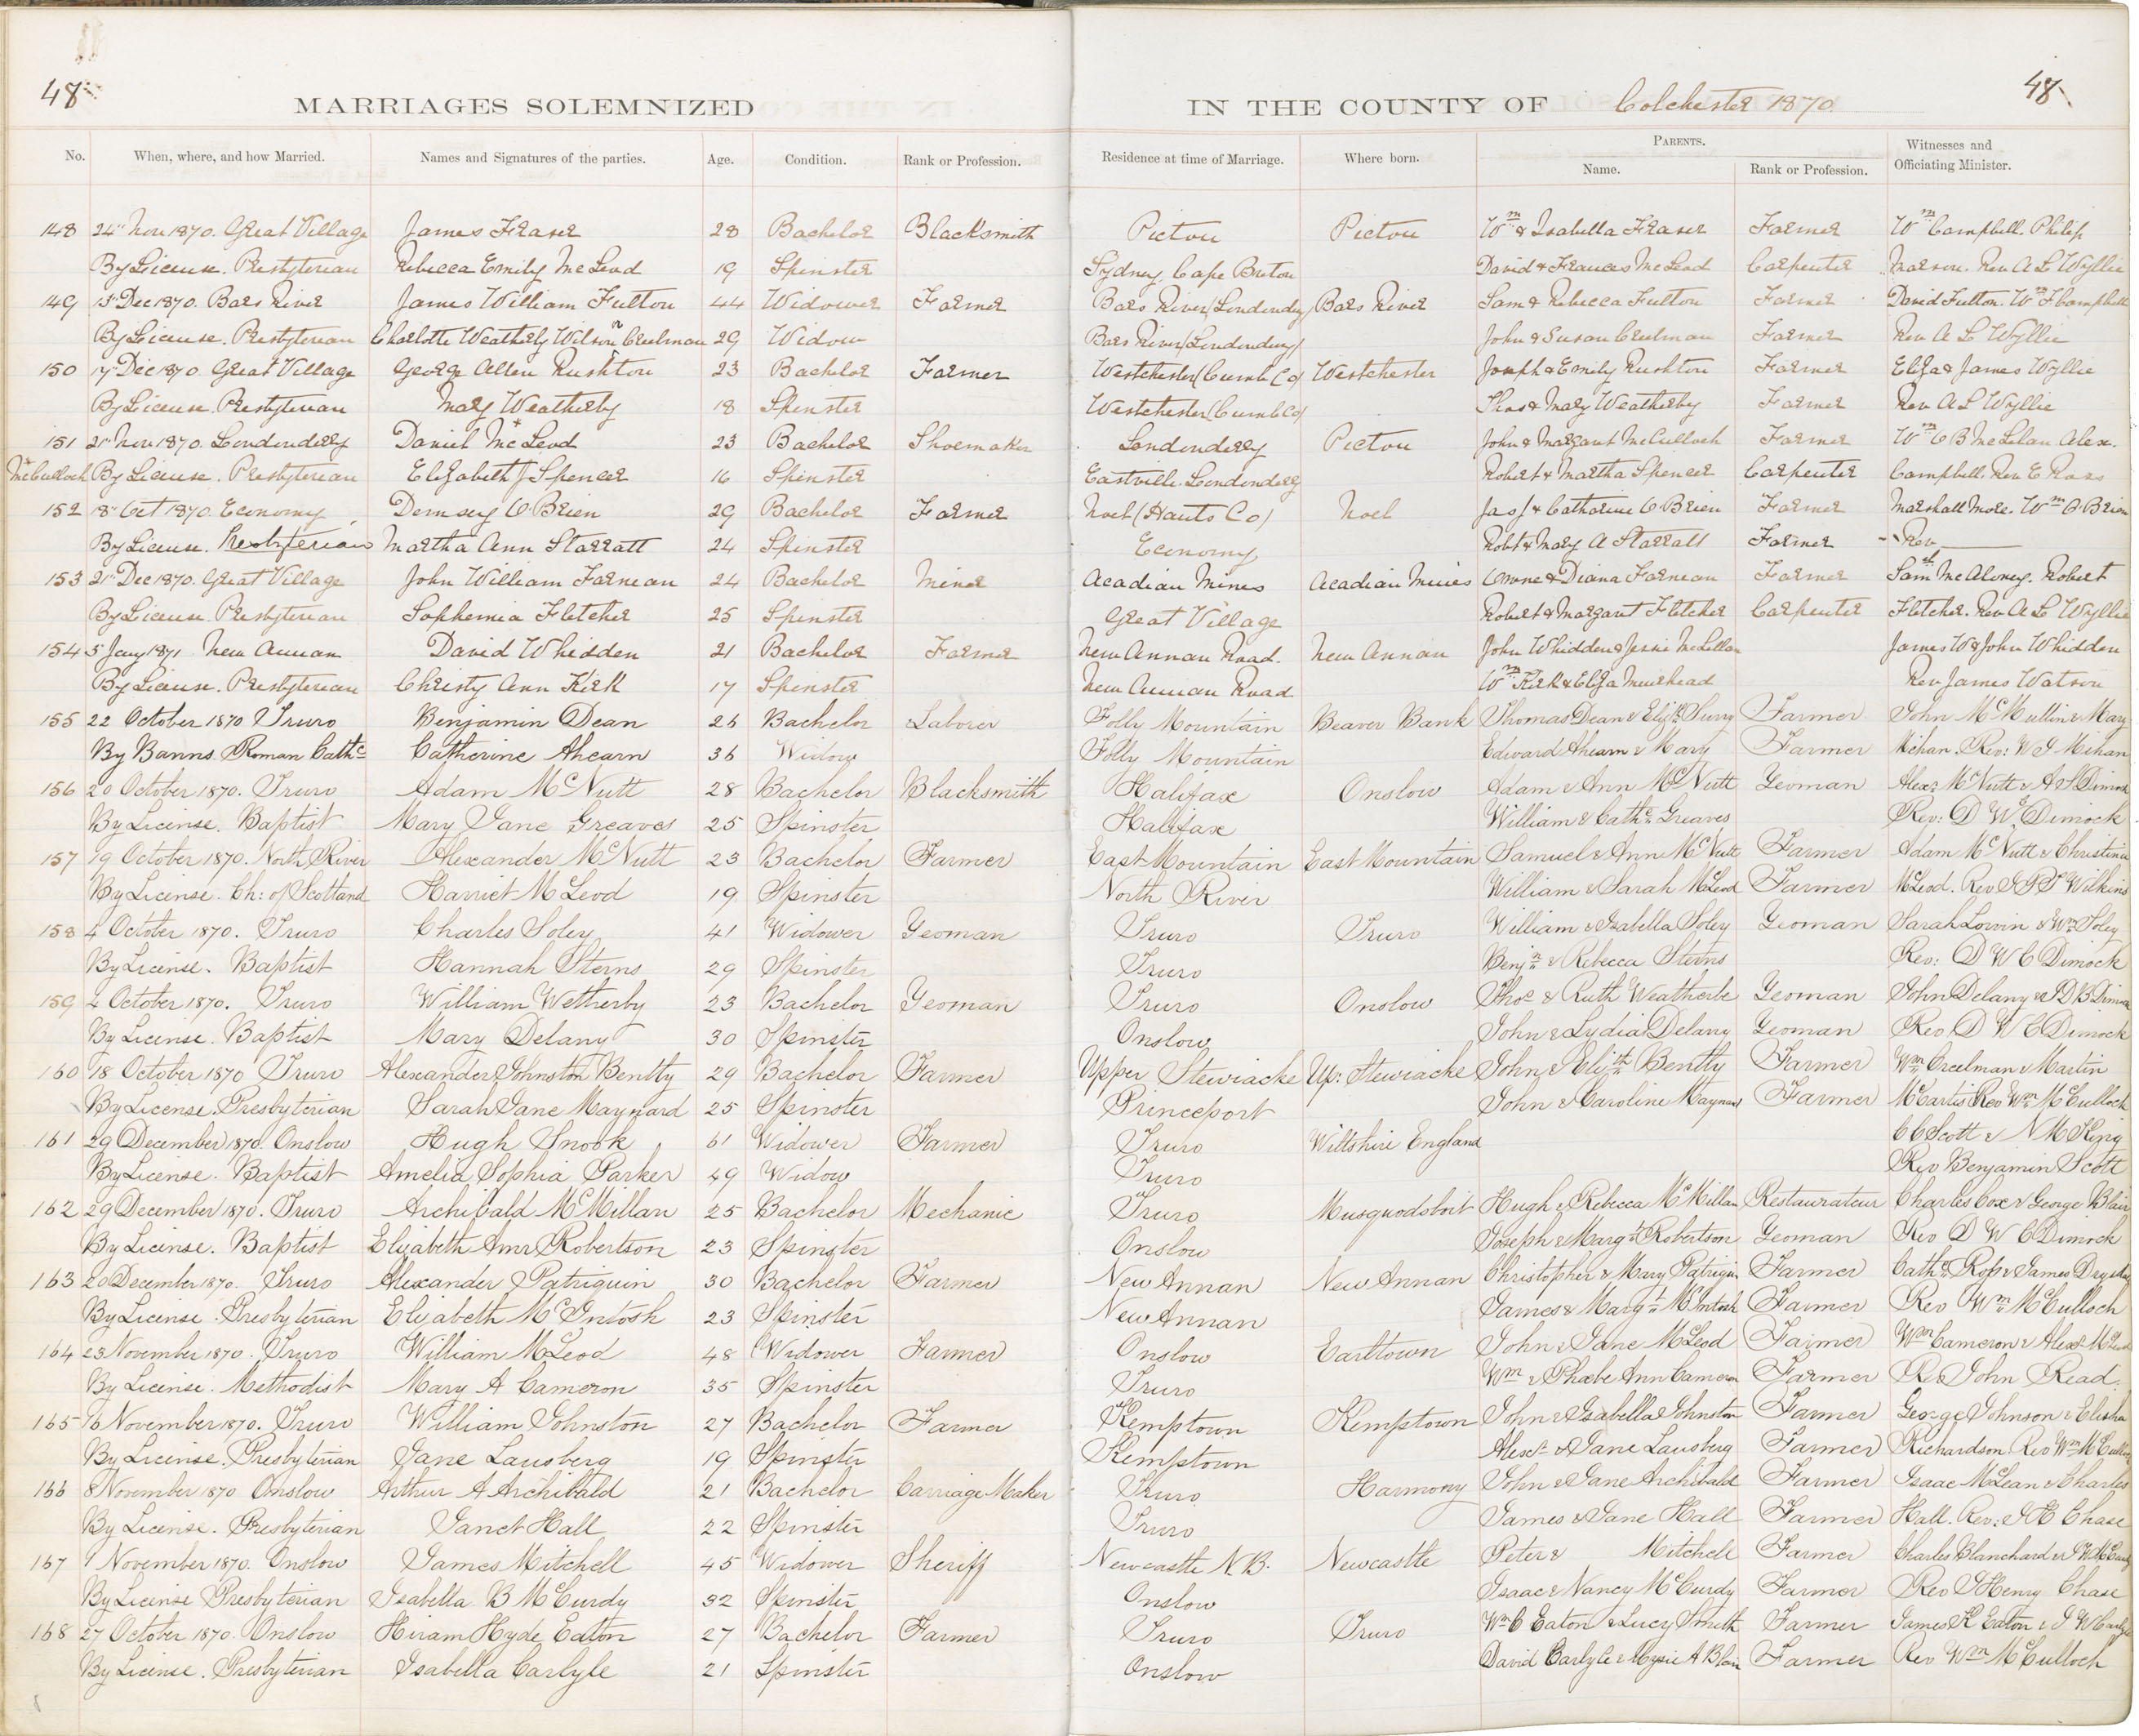 48 48
MARRIAGES SOLEMNIZED IN THE COUNTY OF Colchester 1870.
No. When, where, and how Married. Names and Signatures of the parties. Age. Condition. Rank or Profession. Residence at time of Marriage. Where born. PARENTS. Name. Rank or Profession. Witnesses and Officiating Minister.
148 24" Nov 1870. Great Village James Fraser 28 Bachelor Blacksmith Pictou Pictou Wm & Isabella Fraser Farmer Wm Campbell. Philip
By License. Presbyterian Rebecca Emily McLeod 19 Spinster Sydney, Cape Breton David & Frances McLeod Carpenter Marson. Rev A L Wyllie
149 13" Dec 1870. Bass River James William Fulton 44 Widower Farmer Bass River (Londonderry) Bass River Sam & Rebecca Fulton Farmer David Fulton. Wm F Campbell
By License. Presbyterian Charlotte Weatherby Wilson Creelman 29 Widow Bass River (Londonderry) John & Susan Creelman Farmer Rev A L Wyllie
150 Dec 1870. Great Village George Allen Rushton 23 Bachelor Farmer Westchester (Cumb Co) Westchester Joseph & Emily Rushton Farmer Eliza & James Wyllie
By License. Presbyterian Mary Weatherby 18 Spinster Westchester (Cumb Co) Thos & Mary Weatherby Farmer Rev A L Wyllie
151 21" Nov 1870. Londonderry Daniel Mc*Leod 23 Bachelor Shoemaker Londonderry Pictou John & Margaret McCulloch Farmer Wm C B McLelan Alex.
*McCulloch By License. Presbyterian Elizabeth J Spencer 16 Spinster Eastville. Londonderry Robert & Martha Spencer Carpenter Campbell. Rev E Ross
152 18" Oct 1870. Economy Demsey O'Brien 29 Bachelor Farmer Noel (Hants Co) Noel Jas J & Catharine O'Brien Farmer Marshall More. Wm O'Brien
By License. Presbyterian Martha Ann Starratt 24 Spinster Economy Robt & Mary A Starratt Farmer Rev
153 21" Dec 1870. Great Village John William Farnean 24 Bachelor Miner Acadian Mines Acadian Mines & Diana Farnean Farmer Saml McAloney. Robert
By License. Presbyterian Sophemia Fletcher 25 Spinster Great Village Robert & Margaret Fletcher Carpenter Fletcher. Rev A L Wyllie
154 5" Jany 1871 New Annan David Whidden 21 Bachelor Farmer New Annan Road. New Annan John Whidden & Jessie McLellan James W & John Whidden
By License. Presbyterian Christy Ann Kirk 17 Spinster New Annan Road Wm Kirk & Eliza Muirhead Rev James Watson
155 22 October 1870 Truro Benjamin Dean 26 Bachelor Laborer Folly Mountain Beaver Bank Thomas Dean & Elizth Surry Farmer John McMullin & Mary
By Banns. Roman Cathc Catherine Ahearn 36 Widow Folly Mountain Edward Ahearn & Mary Farmer Mihan. Rev: W I Mihan
156 20 October 1870. Truro Adam McNutt 28 Bachelor Blacksmith Halifax Onslow Adam & Ann McNutt Yeoman Alexr McNutt & A S Dimock
By License. Baptist Mary Jane Greaves 25 Spinster Halifax William & Cathe Greaves Rev: D W C Dimock
157 19 October 1870. North River Alexander McNutt 23 Bachelor Farmer East Mountain East Mountain Samuel & Ann McNutt Farmer Adam McNutt & Christina
By License. Ch: of Scotland Harriet McLeod 19 Spinster North River William & Sarah McLeod Farmer McLeod. Rev Wilkins
158 4 October 1870. Truro Charles Soley 41 Widower Yeoman Truro Truro William & Isabella Soley Yeoman Sarah Lorvin & Wm Soley
By License. Baptist Hannah Sterns 29 Spinster Truro Benjn & Rebecca Sterns Rev: D W C Dimock
159 4 October 1870. Truro William Wetherby 23 Bachelor Yeoman Truro Onslow Thos & Ruth Weatherbe Yeoman John Delany & Dimock
By License. Baptist Mary Delany 30 Spinster Onslow John & Lydia Delany Yeoman Rev D W C Dimock
160 18 October 1870 Truro Alexander Johnston Bentty 29 Bachelor Farmer Upper Stewiacke Up: Stewiacke John & Elizth Bentty Farmer Wm Creelman & Martin
By License. Presbyterian Sarah Jane Maynard 25 Spinster Princeport John & Caroline Maynard Farmer McCartis Rev Wm McCulloch
161 29 December 1870. Onslow Hugh Snook 61 Widower Farmer Truro Wiltshire England C C Scott & N McKing
By License. Baptist Amelia Sophia Parker 49 Widow Truro Rev Benjamin Scott
162 29 December 1870. Truro Archibald McMillan 25 Bachelor Mechanic Truro Musquodoboit Hugh & Rebecca McMillan Restaurateur Charles Cox & George Blair
By License. Baptist Elizabeth Ann Robertson 23 Spinster Onslow Joseph & Margt Robertson Yeoman Rev D W C Dimock
163 20 December 1870. Truro Alexander Patriquin 30 Bachelor Farmer New Annan New Annan Christopher & Mary Patriquin Farmer Cathe Ross & James Drysdale
By License. Presbyterian Elizabeth McIntosh 23 Spinster New Annan James & Margt McIntosh Farmer Rev Wm McCulloch
164 23 November 1870. Truro William McLeod 48 Widower Farmer Onslow Earltown John & Jane McLeod Farmer Wm Cameron & Alexr McLeod
By License. Methodist Mary A Cameron 35 Spinster Truro Wm & Phoebe Ann Cameron Farmer Rev John Read.
165 16 November 1870. Truro William Johnston 27 Bachelor Farmer Kemptown Kemptown John & Isabella Johnston Farmer George Johnson & Elisha
By License. Presbyterian Jane Lansberg 19 Spinster Kemptown Alexr & Jane Lansberg Farmer Richardson. Rev Wm McCulloch
166 8 November 1870 Onslow Arthur A Archibald 21 Bachelor Carriage Maker Truro Harmony John & Jane Archibald Farmer Isaac McLean & Charles
By License. Presbyterian Janet Hall 22 Spinster Truro James & Jane Hall Farmer Hall. Rev: J H Chase
167 1 November 1870. Onslow James Mitchell 45 Widower Sheriff Newcastle N.B. Newcastle Peter & Mitchell Farmer Charles Blanchard & McCurdy
By License Presbyterian Isabella B McCurdy 32 Spinster Onslow Isaac & Nancy McCurdy Farmer Rev J Henry Chase
168 27 October 1870. Onslow Hiram Hyde Eaton 27 Bachelor Farmer Truro Truro Wm C Eaton & Lucy Smith Farmer James K Eaton & J W Carlyle
By License. Presbyterian Isabella Carlyle 21 Spinster Onslow David Carlyle & Mysie A Blair Farmer Rev Wm McCulloch